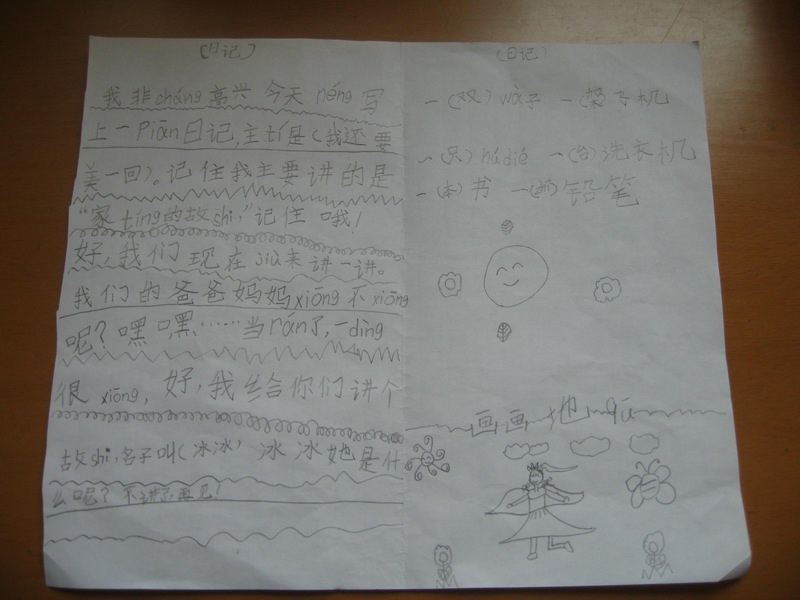 （日记）
我非cháng高兴今天néng写
上一Piān日记，主tí是（我还要
美一回）。记住我主要讲的是
“家tíng的故shi，”记住哦！
好，我们现在jiù来讲一讲。
我们的爸爸妈妈xiōng不xiōng
呢？嘿嘿……当rán了，一dìng
很xiōng，好，我给你们讲个
故shi，名子叫（冰冰）冰冰她是什
么呢？不讲了，再见！
（日记）
一（双）wà子 一（架）飞机
一（只）húdié 一（台）洗衣机
一（本）书 一（）铅笔
画画地qū